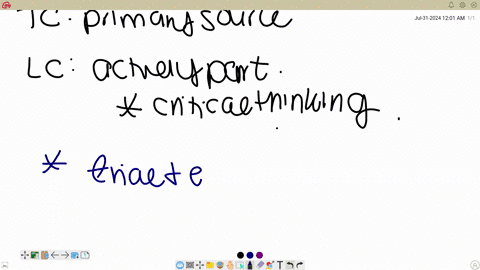 TC: primary source
LC: actively part.
* critical thinking.
* Enacte
Jul-31-2024 12:01 AM 1/1